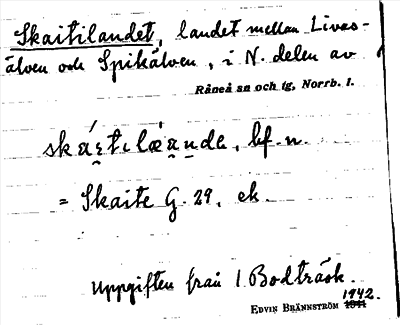 Skaitilandet, landet mellan Livas-
älven och Spikälven, i N. delen av
Råneå sn och tg, Norrb. l.
bf. n.
= Skaite G. 29, ek.
Uppgiften från I. Bodträsk.
1942.
EDVIN BRÄNNSTRÖM 1941